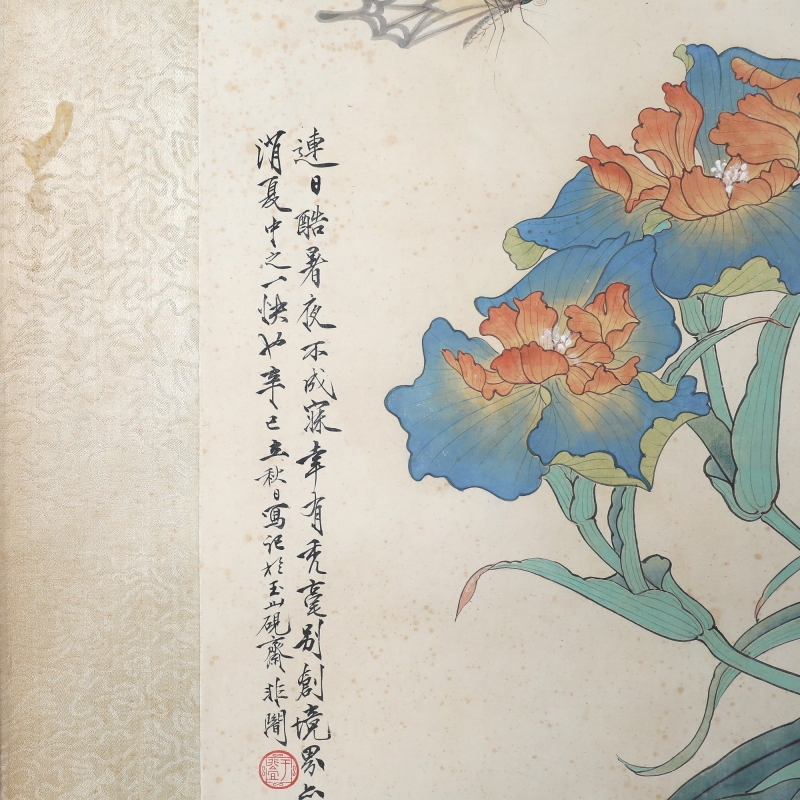 連日酷暑夜不成寐幸有禿毫别創境界亦
消夏中之一快也辛巳立秋日寫記於玉山硯齋非闇